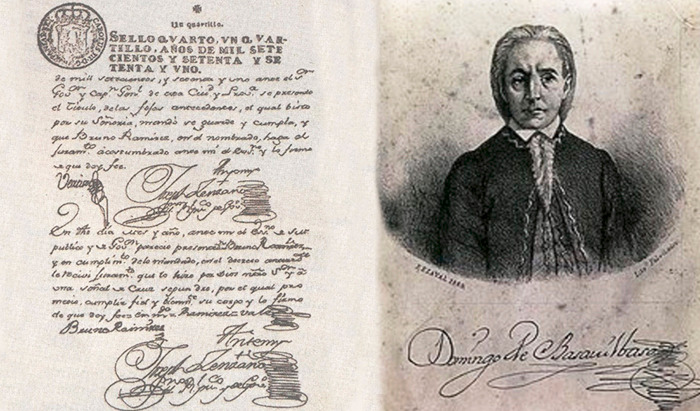 Un quartillo.
SELLO QUARTO, UN QUAR-
TILLO, AÑOS DE MIL SETE
CIENTOS Y SETENTA Y SE
TENTA Y UNO.
de mil setecientos, y setenta y uno ante el Sr
Gov.or y Capn Genl de esta Ciud y Prova se presento
el titulo, de las fojas antecedentes, el qual visto
por su Señoria, mandó se guarde y cumpla, y
que Bruno Ramirez, en el nombrado, haga el
juramto acostumbrado ante mi el Essno y lo firmo
de que doy fee.
Antemy
Joseph Zenzano
En dho dia mes y año, ante mi el Essno
publico y de Govn parecio presente Bruno Ramirez
y en cumplimto de lo mandado, en el decreto
le recivi juramto que lo hizo por Dios nro Sr y a
una señal de Cruz segun dro, por el qual pro
metio, cumplir fiel y su cargo y lo firmo
de que doy fee
Bruno Ramirez
Antemy
Joseph Zenzano
Domingo de Basavilbaso